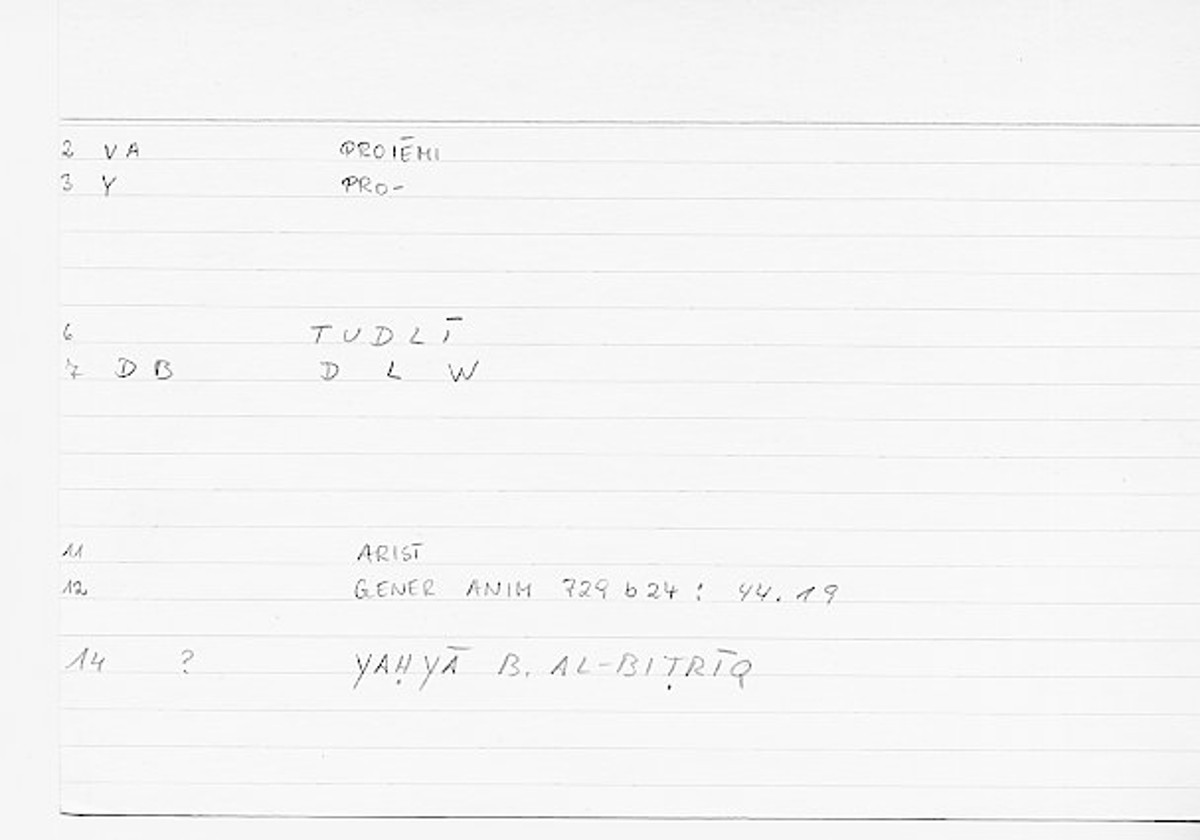 2 VA PROIĒMI
3 Y PRO-
6 TUDLĪ
7 DB D L W
11 ARIST
12 GENER ANIM 729 b 24 : 44.19
14 ? YAḤYĀ B. AL-BIṬRĪQ